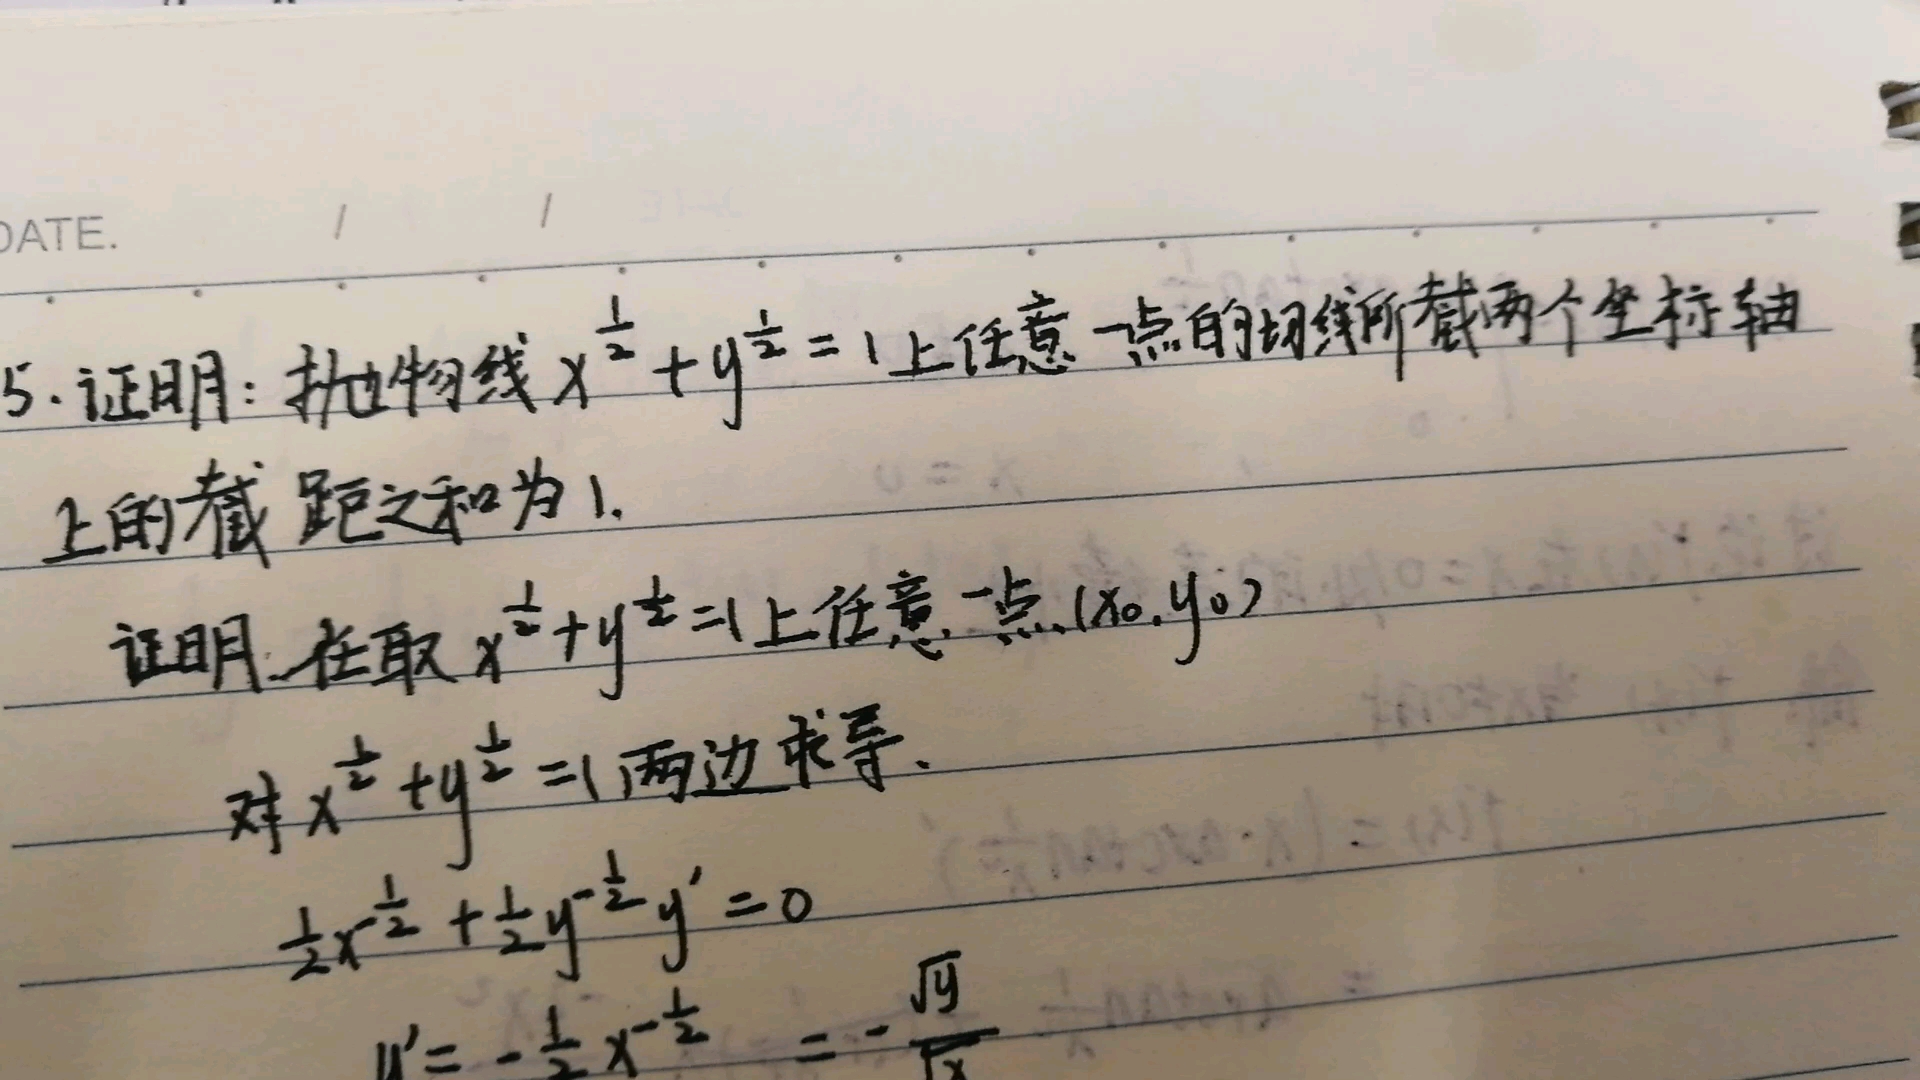 DATE. / /
5. 证明: 抛物线 x^{1/2} + y^{1/2} = 1 上任意一点的切线所截两个坐标轴
上的截距之和为1.
证明. 在取 x^{1/2} + y^{1/2} = 1 上任意一点 (x₀, y₀)
对 x^{1/2} + y^{1/2} = 1 两边求导.
1/2 x^{-1/2} + 1/2 y^{-1/2} y' = 0
y' = - 1/2 x^{-1/2} = - √y/√x